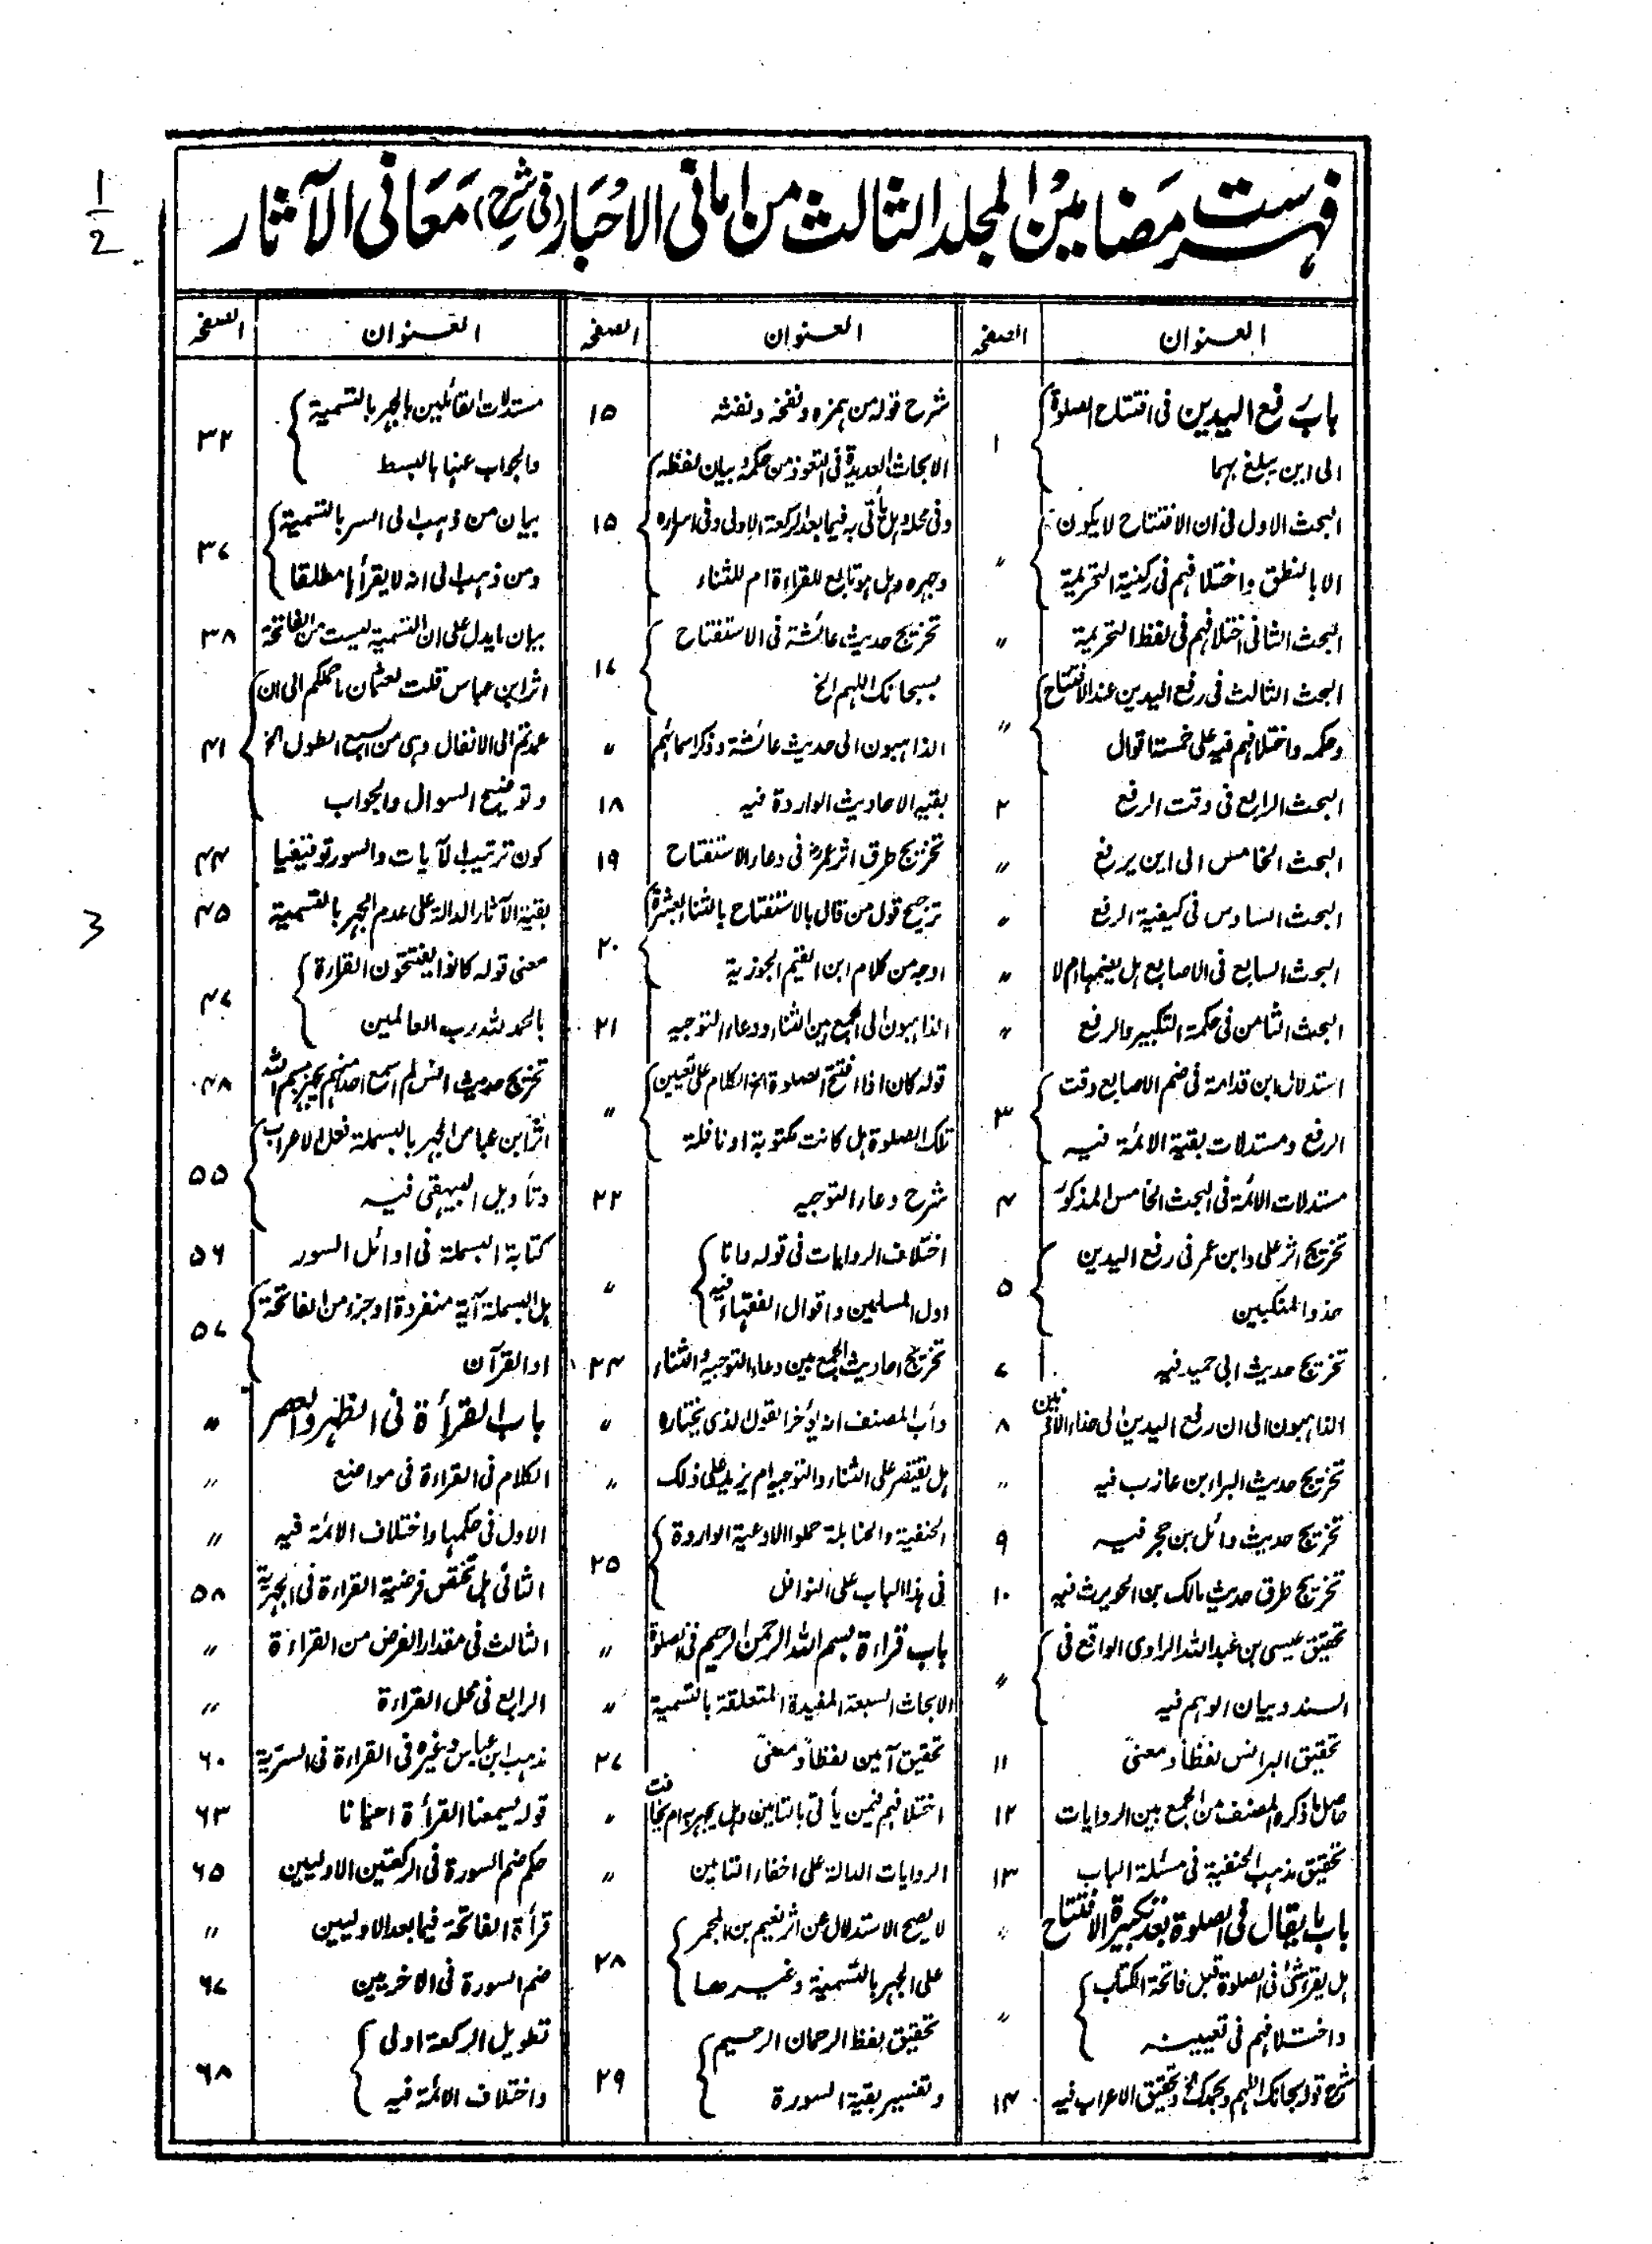 فہرست مضامین المجلد الثالث من امانی الاحبار (فی شرح) معانی الآثار
العنوان
الصفحہ
باب رفع الیدین فی افتتاح الصلوۃ
الی این یبلغ بہما
۱
البحث الاول فی ان الافتتاح لا یکون
الا بالنطق واختلافہم فی رکنیۃ التحریمۃ
〃
البحث الثانی اختلافہم فی لفظ التحریمۃ 〃
البحث الثالث فی رفع الیدین عند الافتتاح
وحکمہ واختلافہم فیہ علی خمسۃ اقوال
〃
البحث الرابع فی وقت الرفع ۲
البحث الخامس الی این یرفع 〃
البحث السادس فی کیفیۃ الرفع 〃
البحث السابع فی الاصابع ہل یضمہا ام لا 〃
البحث الثامن فی حکمۃ التکبیر والرفع 〃
استدلال ابن قدامۃ فی ضم الاصابع وقت
الرفع ومستدلات بقیۃ الائمۃ فیہ
۳
مستدلات الائمۃ فی البحث الخامس المذکور ۴
تخریج اثر علی وابن عمر فی رفع الیدین
حذو المنکبین
۵
تخریج حدیث ابی حمید فیہ ۷
الذاہبون الی ان رفع الیدین الی حذاء الاذنین ۸
تخریج حدیث البراء بن عازب فیہ 〃
تخریج حدیث وائل بن حجر فیہ ۹
تخریج طرق حدیث مالک بن الحویرث فیہ ۱۰
تحقیق عیسی بن عبداللہ الراوی الواقع فی
السند وبیان الوہم فیہ
〃
تحقیق البرانس لفظاً ومعنیً ۱۱
حاصل ما ذکرہ المصنف من الجمع بین الروایات ۱۲
تحقیق مذہب الحنفیۃ فی مسئلۃ الباب ۱۳
باب ما یقال فی الصلوۃ بعد تکبیرۃ الافتتاح 〃
ہل یقرأ شئ فی الصلوۃ قبل فاتحۃ الکتاب
واختلافہم فی تعیینہ
〃
شرح قولہ سبحانک اللہم وبحمدک الخ وتحقیق الاعراب فیہ ۱۴
العنوان
الصفحہ
شرح قولہ من ہمزہ ونفخہ ونفثہ ۱۵
الابحاث العدیدۃ فی التعوذ من حکمہ وبیان لفظہ
وفی محلہ وہل یأتی بہ فیما بعد الرکعۃ الاولی وفی اسرارہ
وجہرہ وہل ہو تابع للقراءۃ ام للثناء
۱۵
تخریج حدیث عائشۃ فی الاستفتاح
بسبحانک اللہم الخ
۱۷
الذاہبون الی حدیث عائشۃ وذکر اسمائہم 〃
بقیۃ الاحادیث الواردۃ فیہ ۱۸
تخریج طرق اثر عمرؓ فی دعاء الاستفتاح ۱۹
ترجیح قول من قال بالاستفتاح بالثناء بعشرۃ
اوجہ من کلام ابن القیم الجوزیۃ
۲۰
الذاہبون الی الجمع بین الثناء ودعاء التوجیہ ۲۱
قولہ کان اذا افتتح الصلوۃ الخ الکلام علی تعیین
تلک الصلوۃ ہل کانت مکتوبۃ او نافلۃ
〃
شرح دعاء التوجیہ ۲۲
اختلاف الروایات فی قولہ وانا
اول المسلمین واقوال الفقہاء فیہ
〃
تخریج احادیث الجمع بین دعاء التوجیہ والثناء ۲۴
دأب المصنف انہ یؤخر القول الذی یختارہ 〃
ہل یقتصر علی الثناء والتوجیہ ام یزید علی ذلک 〃
الحنفیۃ والحنابلۃ حملوا الادعیۃ الواردۃ
فی ہذا الباب علی النوافل
۲۵
باب قراءۃ بسم اللہ الرحمن الرحیم فی الصلوۃ 〃
الابحاث السبعۃ المفیدۃ المتعلقۃ بالتسمیۃ 〃
تحقیق آمین لفظاً ومعنیً ۲۷
اختلافہم فیمن یأتی بالتامین وہل یجہر بہ ام یخافت 〃
الروایات الدالۃ علی اخفاء التامین 〃
لا یصح الاستدلال عن اثر نعیم بن المجمر
علی الجہر بالتسمیۃ وغیرھا
۲۸
تحقیق لفظ الرحمان الرحیم
وتفسیر بقیۃ السورۃ
۲۹
العنوان
الصفحہ
مستدلات القائلین بالجہر بالتسمیۃ
والجواب عنہا بالبسط
۳۲
بیان من ذہب الی السر بالتسمیۃ
ومن ذہب الی انہ لا یقرأہا مطلقا
۳۷
بیان ما یدل علی ان التسمیۃ لیست من الفاتحۃ ۳۸
اثر ابن عباس قلت لعثمان ما حملکم الی ان
عمدتم الی الانفال وہی من السبع الطول الخ
وتوضیح السوال والجواب
۴۱
کون ترتیب الآیات والسور توقیفیا ۴۴
بقیۃ الآثار الدالۃ علی عدم الجہر بالتسمیۃ ۴۵
معنی قولہ کانوا یفتتحون القراءۃ
بالحمد للہ رب العالمین
۴۷
تخریج حدیث انس لم اسمع احدا منہم یجہر ببسم اللہ ۴۸
اثر ابن عباس الجہر بالبسملۃ فعل الاعراب
وتأویل البیہقی فیہ
۵۵
کتابۃ البسملۃ فی اوائل السور ۵۶
ہل البسملۃ آیۃ منفردۃ او جزء من الفاتحۃ
او القرآن
۵۷
باب القرأۃ فی الظہر والعصر 〃
الکلام فی القراءۃ فی مواضع 〃
الاول فی حکمہا واختلاف الائمۃ فیہ 〃
الثانی ہل تختص فرضیۃ القراءۃ فی الجہریۃ ۵۸
الثالث فی مقدار الفرض من القراءۃ 〃
الرابع فی محل القراءۃ 〃
مذہب ابن عباس وغیرہ فی القراءۃ فی السریۃ ۶۰
قولہ یسمعنا القرأۃ احیانا ۶۳
حکم ضم السورۃ فی الرکعتین الاولیین ۶۵
قرأۃ الفاتحۃ فیما بعد الاولیین 〃
ضم السورۃ فی الاخریین ۶۷
تطویل الرکعۃ اولی
واختلاف الائمۃ فیہ
۶۸
1/2
3